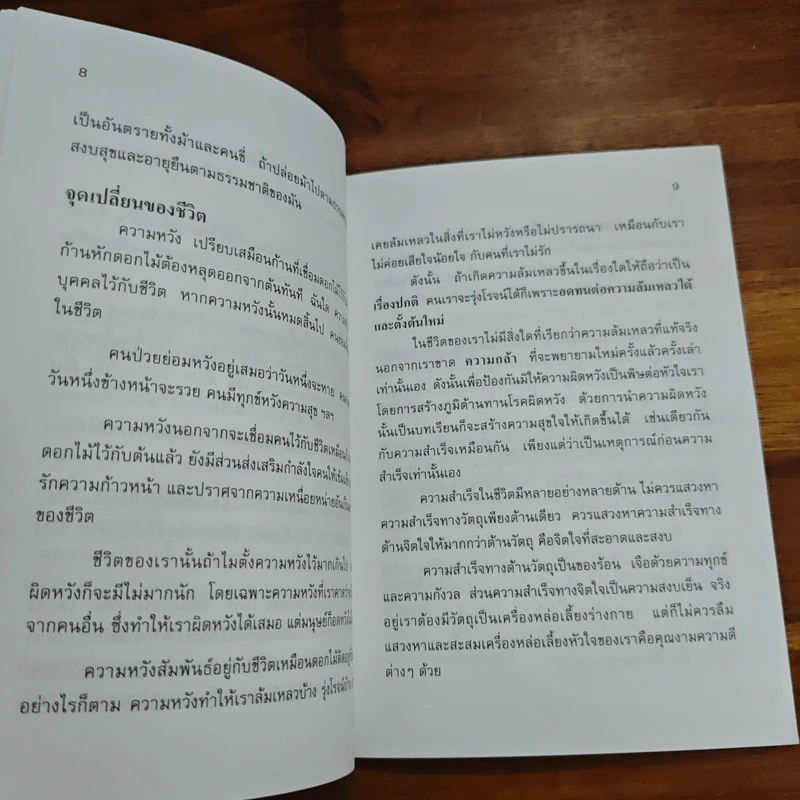 8
เป็นอันตรายทั้งม้าและคนขี่ ถ้าปล่อยม้าไปตามธรรม
สงบสุขและอายุยืนตามธรรมชาติของมัน
จุดเปลี่ยนของชีวิต
ความหวัง เปรียบเสมือนก้านที่เชื่อมดอกไม้ไว้
ก้านหักดอกไม้ต้องหลุดออกจากต้นทันที ฉันใด
บุคคลไว้กับชีวิต หากความหวังนั้นหมดสิ้นไป
ในชีวิต
คนป่วยย่อมหวังอยู่เสมอว่าวันหนึ่งจะหาย
วันหนึ่งข้างหน้าจะรวย คนมีทุกข์หวังความสุข ฯลฯ
ความหวังนอกจากจะเชื่อมคนไว้กับชีวิตเหมือน
ดอกไม้ไว้กับต้นแล้ว ยังมีส่วนส่งเสริมกำลังใจคนให้
รักความก้าวหน้า และปราศจากความเหนื่อยหน่าย
ของชีวิต
ชีวิตของเรานั้นถ้าไม่ตั้งความหวังไว้มากเกินไป
ผิดหวังก็จะมีไม่มากนัก โดยเฉพาะความหวังที่เรา
จากคนอื่น ซึ่งทำให้เราผิดหวังได้เสมอ แต่มนุษย์ก็
ความหวังสัมพันธ์อยู่กับชีวิตเหมือนดอกไม้
อย่างไรก็ตาม ความหวังทำให้เราล้มเหลวบ้าง รุ่งโรจน์
9
เคยล้มเหลวในสิ่งที่เราไม่หวังหรือไม่ปรารถนา เหมือนกับเรา
ไม่ค่อยเสียใจน้อยใจ กับคนที่เราไม่รัก
ดังนั้น ถ้าเกิดความล้มเหลวขึ้นในเรื่องใดให้ถือว่าเป็น
เรื่องปกติ คนเราจะรุ่งโรจน์ได้ก็เพราะอดทนต่อความล้มเหลวได้
และตั้งต้นใหม่
ในชีวิตของเราไม่มีสิ่งใดที่เรียกว่าความล้มเหลวที่แท้จริง
นอกจากเราขาด ความกล้า ที่จะพยายามใหม่ครั้งแล้วครั้งเล่า
เท่านั้นเอง ดังนั้นเพื่อป้องกันมิให้ความผิดหวังเป็นพิษต่อหัวใจเรา
โดยการสร้างภูมิต้านทานโรคผิดหวัง ด้วยการนำความผิดหวัง
นั้นเป็นบทเรียนก็จะสร้างความสุขใจให้เกิดขึ้นได้ เช่นเดียวกัน
กับความสำเร็จเหมือนกัน เพียงแต่ว่าเป็นเหตุการณ์ก่อนความ
สำเร็จเท่านั้นเอง
ความสำเร็จในชีวิตมีหลายอย่างหลายด้าน ไม่ควรแสวงหา
ความสำเร็จทางวัตถุเพียงด้านเดียว ควรแสวงหาความสำเร็จทาง
ด้านจิตใจให้มากกว่าด้านวัตถุ คือจิตใจที่สะอาดและสงบ
ความสำเร็จทางด้านวัตถุเป็นของร้อน เจือด้วยความทุกข์
และความกังวล ส่วนความสำเร็จทางจิตใจเป็นความสงบเย็น จริง
อยู่เราต้องมีวัตถุเป็นเครื่องหล่อเลี้ยงร่างกาย แต่ก็ไม่ควรลืม
แสวงหาและสะสมเครื่องหล่อเลี้ยงหัวใจของเราคือคุณงามความดี
ต่างๆ ด้วย